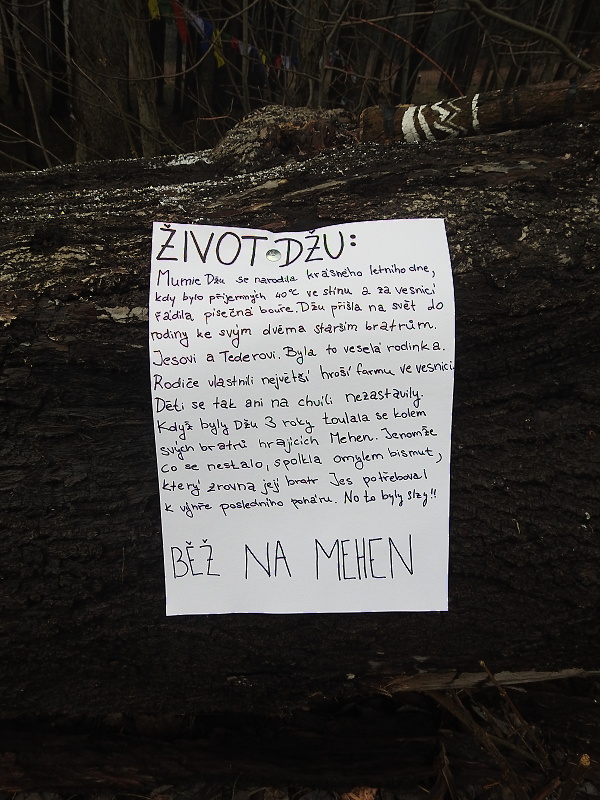 ŽIVOT DŽU:
Mumie Džu se narodila krásného letního dne,
kdy bylo příjemných 40°C ve stínu a za vesnicí
řádila písečná bouře. Džu přišla na svět do
rodiny ke svým dvěma starším bratrům.
Jesovi a Tederovi. Byla to veselá rodinka.
Rodiče vlastnili největší hroší farmu ve vesnici.
Děti se tak ani na chvíli nezastavily.
Když byly Džu 3 roky toulala se kolem
svých bratrů hrajících Mehen. Jenomže
co se nestalo, spolkla omylem bismut,
který zrovna její bratr Jes potřeboval
k výhře posledního poháru. No to byly slzy!!
BĚŽ NA MEHEN